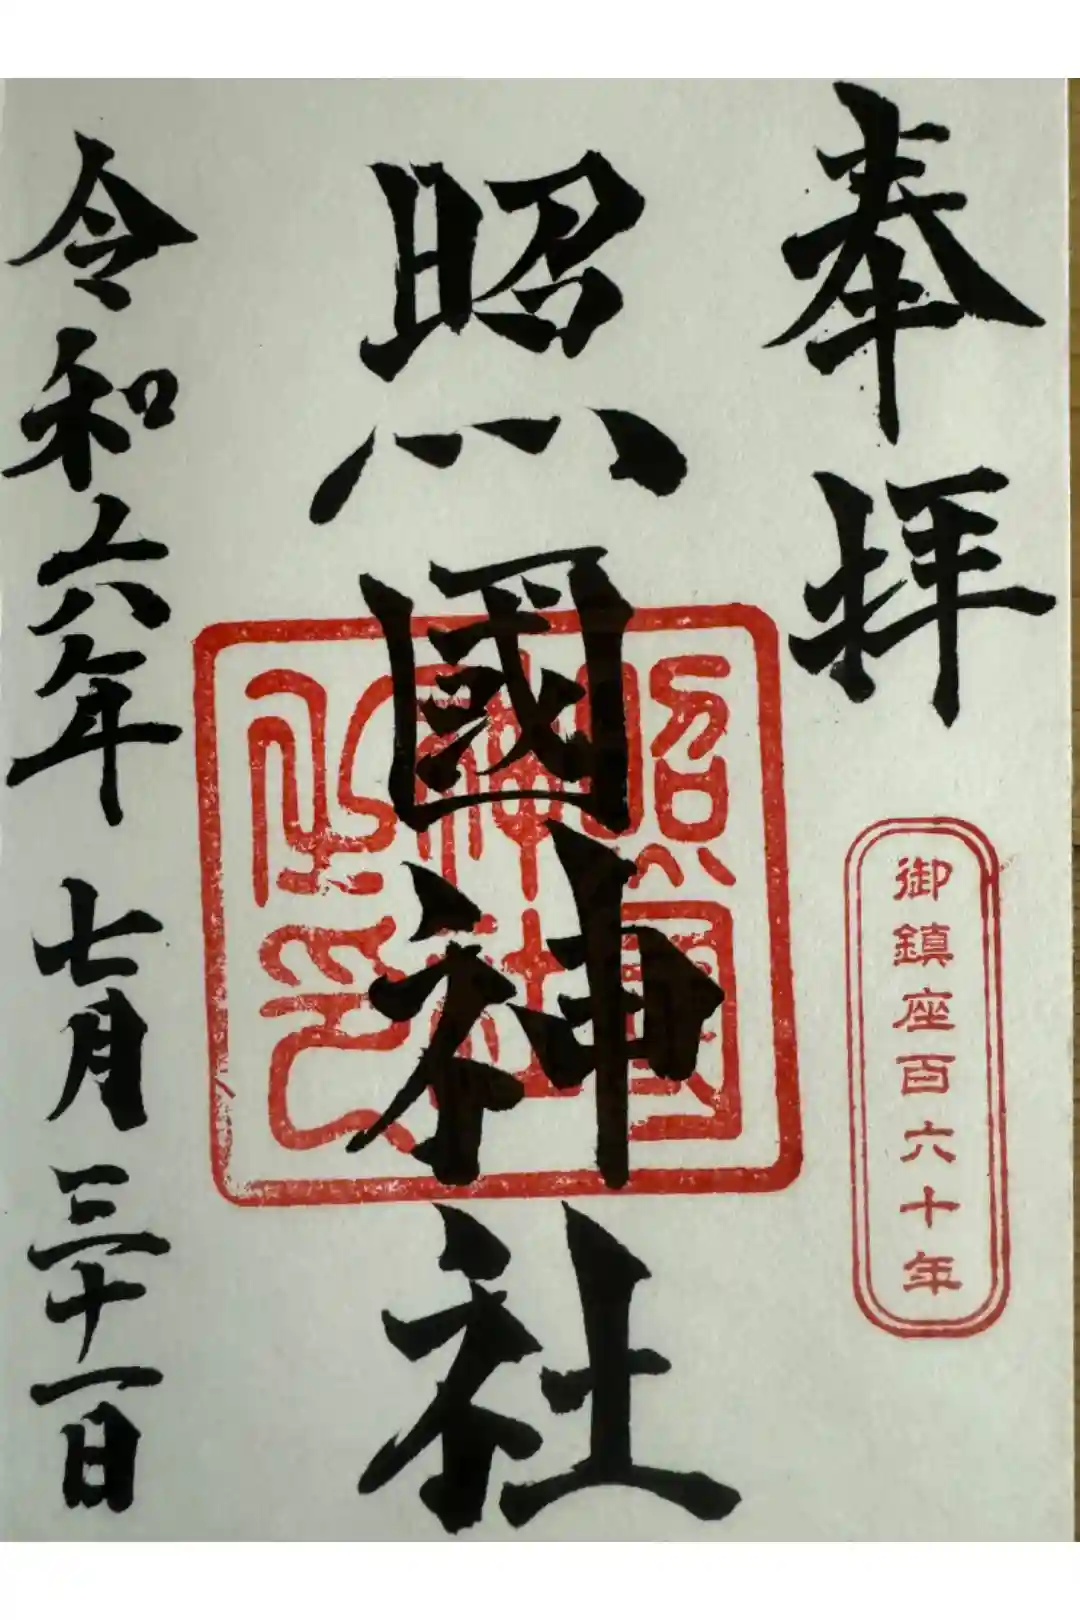 奉拝
御鎮座百六十年
照國神社
照國
神社
之印
令和六年 七月 三十一日